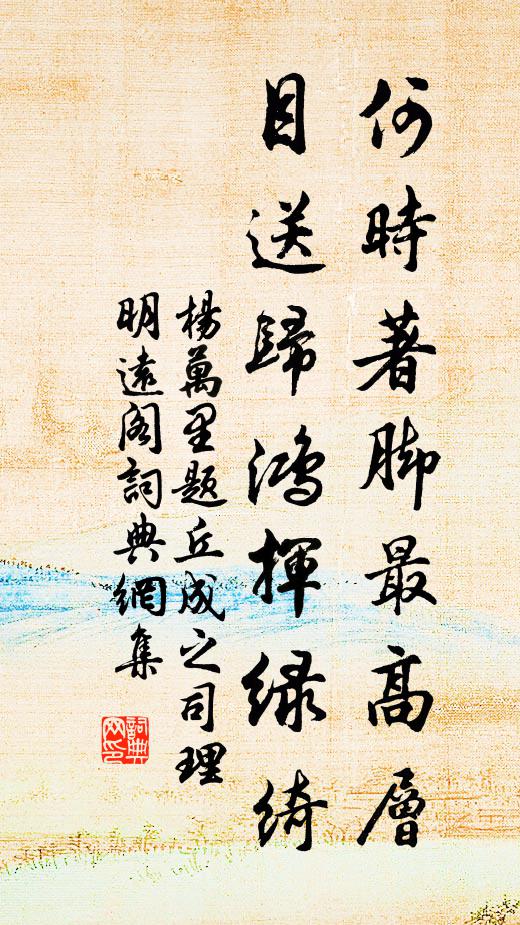 何時著脚最高層
目送歸鴻揮綠綺
楊萬里題丘成之司理
明遠阁詞典網集
詞典
网印